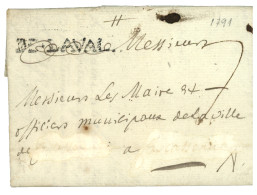 1791
DE-LAVAL. Messieurs
Messieurs Les Maire et
officiers municipaux de la ville
de
a